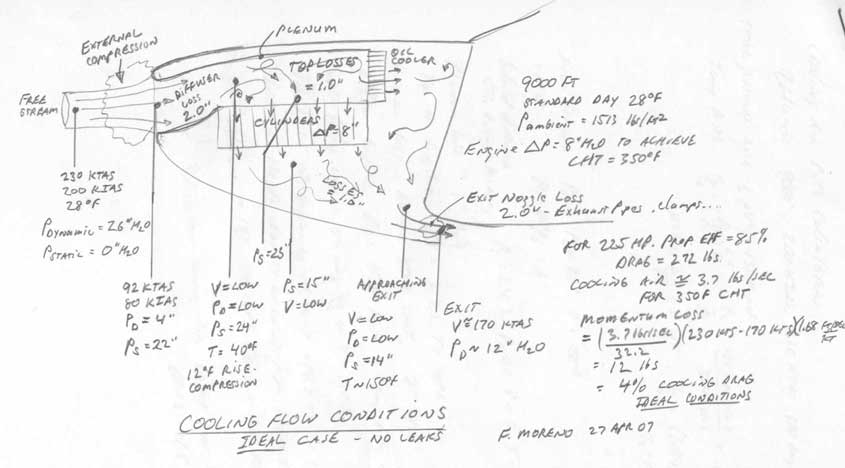 PLENUM
EXTERNAL
COMPRESSION
FREE
STREAM
DIFFUSER
LOSS
2.0"
TOP LOSSES
= 1.0"
OIL
COOLER
CYLINDERS
ΔP = 8"
LOSSES
= 1.0"
9000 FT
STANDARD DAY 28°F
Pambient = 1513 lbs/ft2
ENGINE ΔP = 8" H2O TO ACHIEVE
CHT = 350°F
EXIT NOZZLE LOSS
2.0" - EXHAUST PIPES, clamps....
230 KTAS
200 KIAS
28°F
PDYNAMIC = 26" H2O
PSTATIC = 0" H2O
92 KTAS
80 KIAS
PD = 4"
PS = 22"
V = LOW
PD = LOW
PS = 24"
T = 40°F
12°F RISE.
COMPRESSION
PS = 23"
PS = 15"
V = LOW
APPROACHING
EXIT
V = LOW
PD = LOW
PS = 14"
T ~ 150°F
EXIT
V ≅ 170 KTAS
PD ~ 12" H2O
FOR 225 HP. PROP EFF = 85%
DRAG = 272 lbs.
COOLING AIR ≅ 3.7 lbs/SEC
FOR 350F CHT
MOMENTUM LOSS
= (3.7 lbs/sec / 32.2) (230 KTS - 170 KTS) (1.68 FT/SEC / KT)
= 12 lbs
= 4% COOLING DRAG
IDEAL CONDITIONS
COOLING FLOW CONDITIONS
IDEAL CASE - NO LEAKS
F. MORENO 27 APR 07